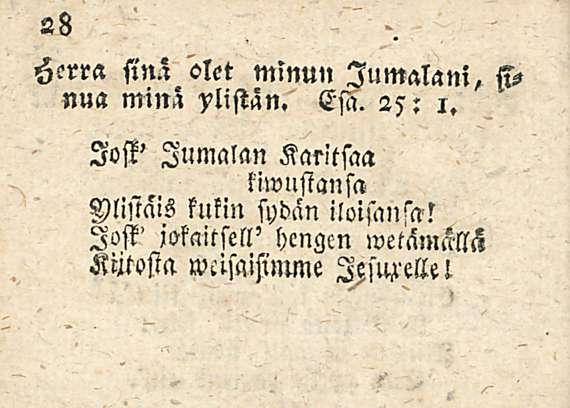 28
Herra sinä olet minun Jumalani, si-
nua minä ylistän. Esa. 25: 1.
Josk' Jumalan Karitsaa
kiwustansa
Ylistäis kukin sydän iloisansa!
Josk' jokaitsell' hengen wetämällä
Kiitosta weisaisimme Jesuxelle!